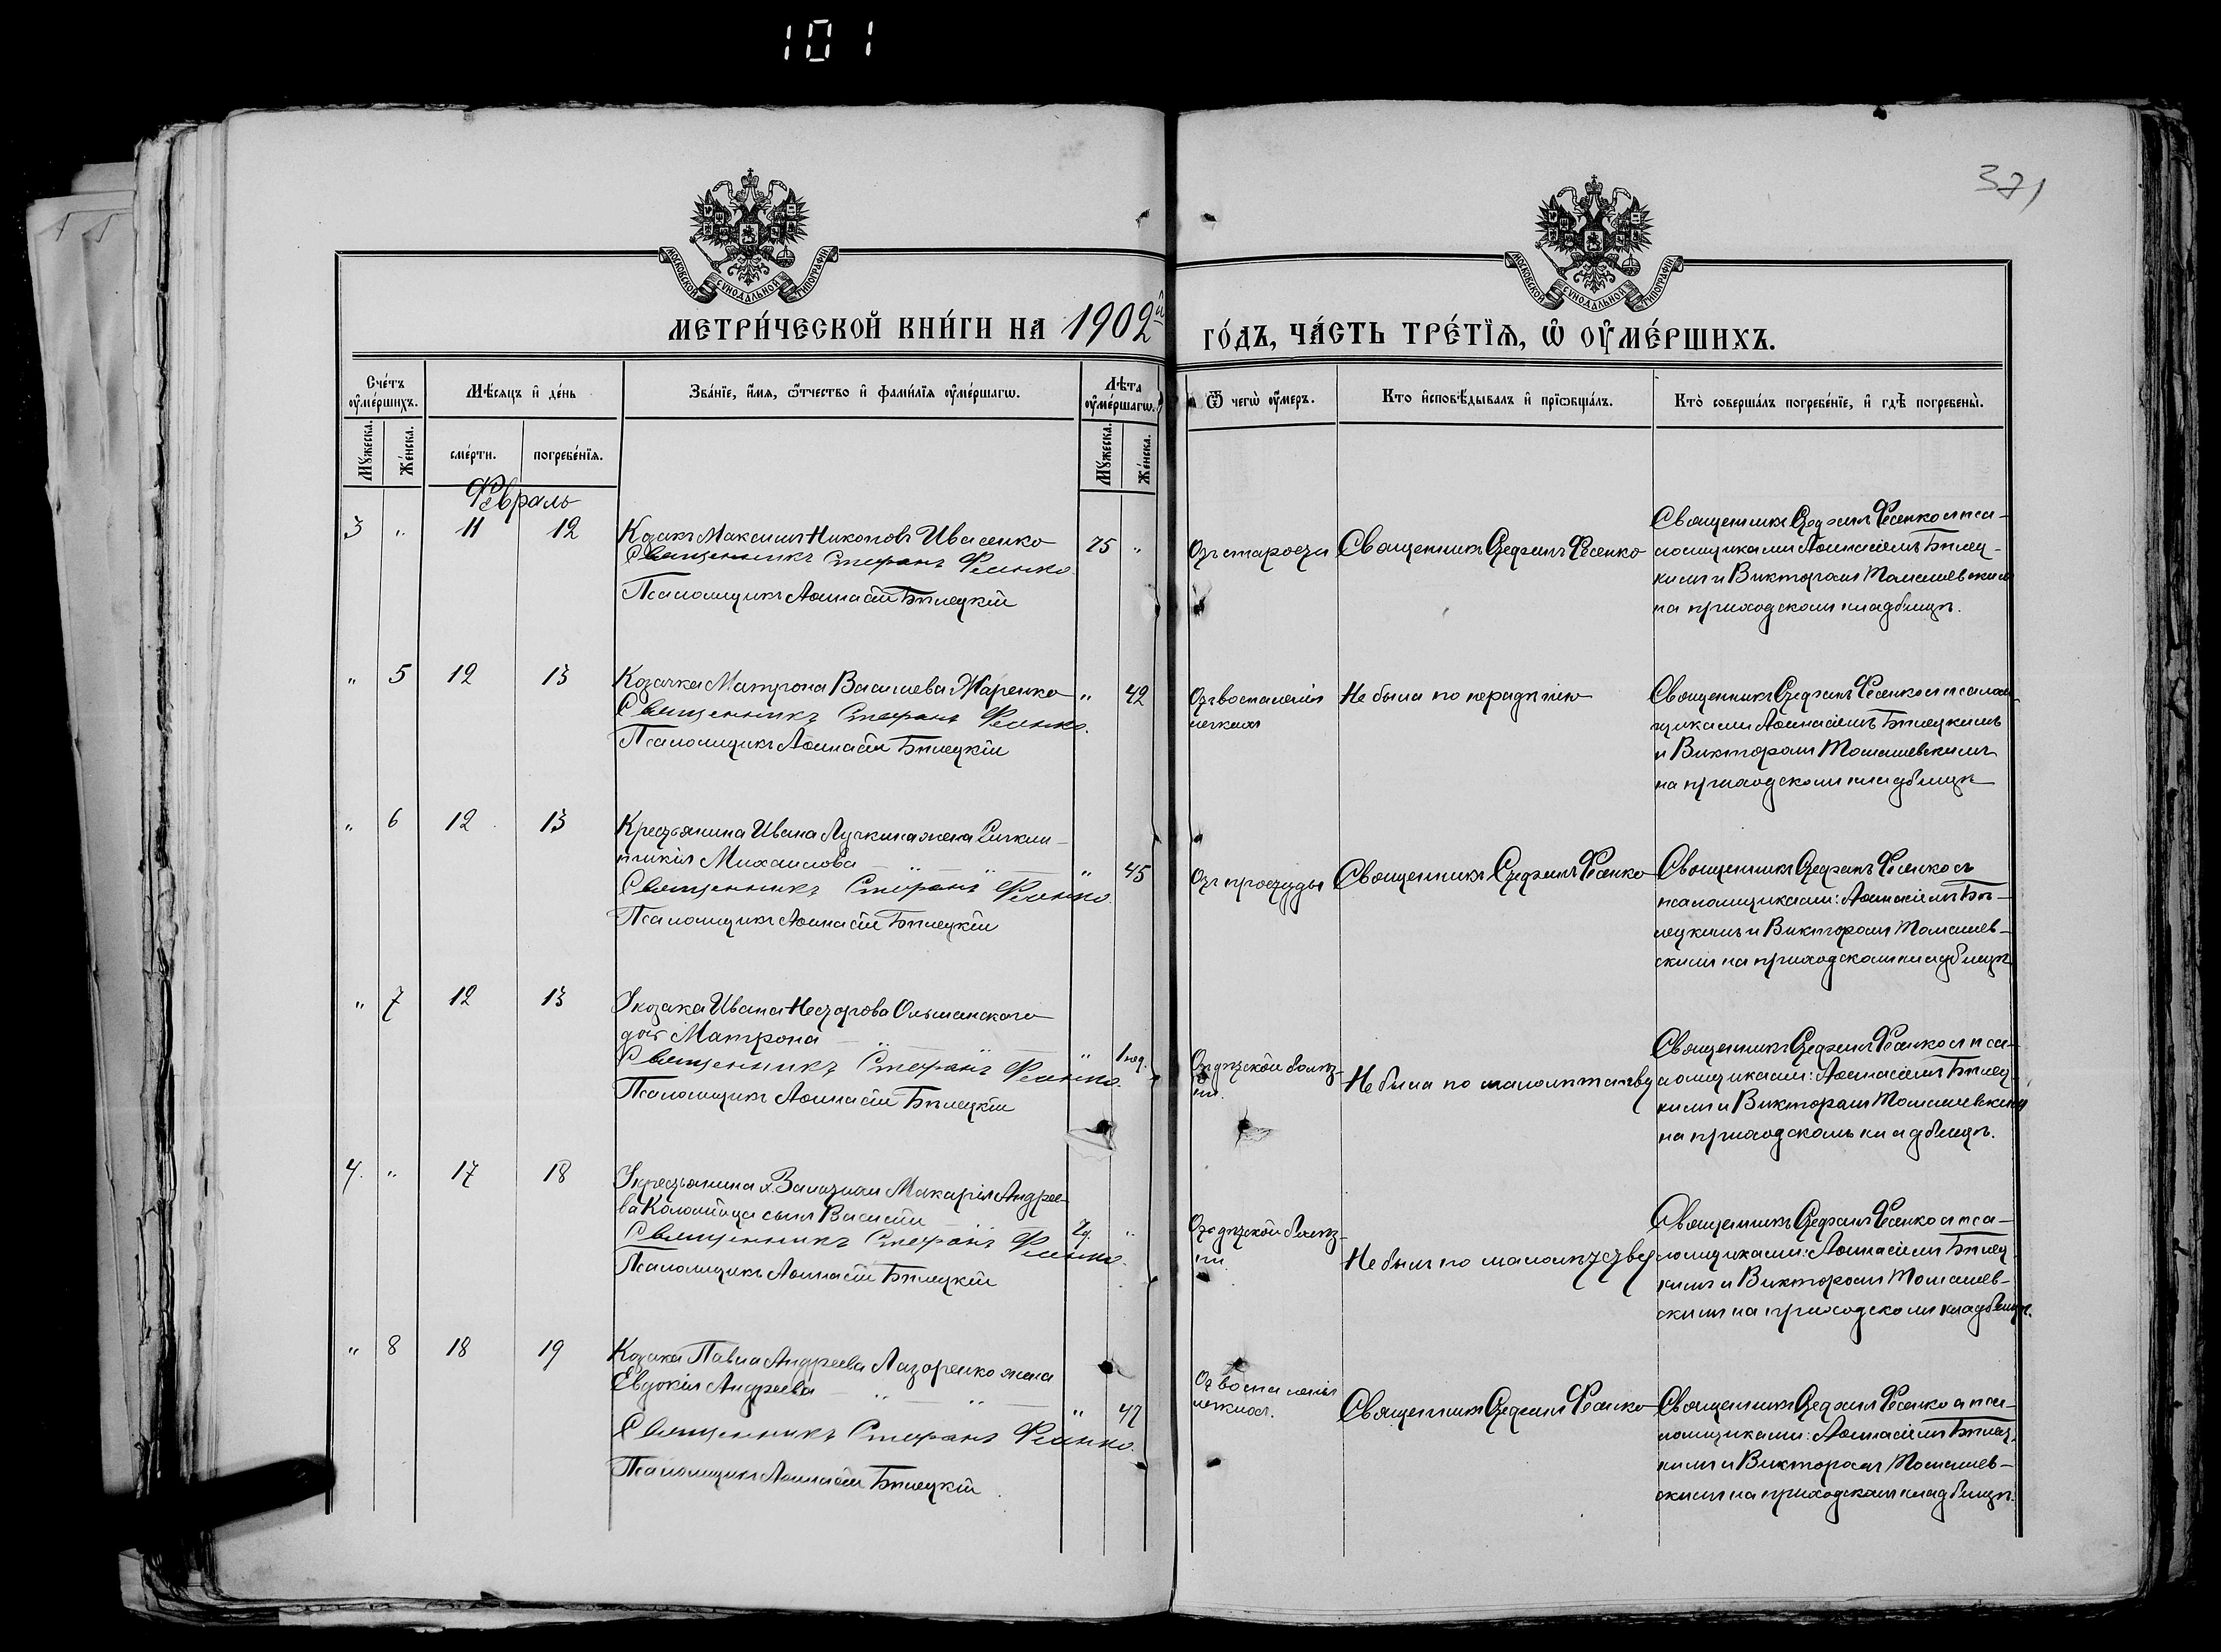 101
371
МОСКОВСКОЙ СУНОДАЛЬНОЙ ТИПОГРАФІИ
МОСКОВСКОЙ СУНОДАЛЬНОЙ ТИПОГРАФІИ
МЕТРИ́ЧЕСКОЙ КНИ́ГИ НА 1902й ГО́ДЪ, ЧА́СТЬ ТРЕ́ТЇѦ, Ѡ ОУ҆МЕ́РШИХЪ.
Сче́тъ оу҆ме́ршихъ.
Мѣ́сяцъ и҆ де́нь
Зва́нїе, и҆́мя, ѻ҆́тчество и҆ фами́лїя оу҆ме́ршагѡ.
Лѣ́та оу҆ме́ршагѡ.
Ѿ чегѡ̀ оу҆́меръ.
Кто̀ и҆сповѣ́дывалъ и҆ прїѡбща́лъ.
Кто̀ соверша́лъ погребе́нїе, и҆ гдѣ̀ погребены̀.
Мꙋ́жеска.
Же́нска.
сме́рти.
погребе́нїя.
Мꙋ́жеска.
Же́нска.
Февраль
3 " 11 12
Козакъ Максимъ Никоновъ Ивасенко
Священникъ Стефанъ Фесенко
Псаломщикъ Аѳанасій Бѣлецкій
75 "
Отъ старости
Священникъ Стефанъ Фесенко
Священникъ Стефанъ Фесенко съ пса-
ломщиками Аѳанасіемъ Бѣлец-
кимъ и Викторомъ Томашевскимъ
на приходскомъ кладбищѣ.
" 5 12 13
Козачка Матрона Васильева Жаренко
Священникъ Стефанъ Фесенко.
Псаломщикъ Аѳанасій Бѣлецкій
" 42
Отъ воспаленія
легкихъ
Не была по нерадѣнію
Священникъ Стефанъ Фесенко съ псалом-
щиками Аѳанасіемъ Бѣлецкимъ
и Викторомъ Томашевскимъ
на приходскомъ кладбищѣ
" 6 12 13
Крестьянина Ивана жена
Михаилова
Священникъ Стефанъ Фесенко.
Псаломщикъ Аѳанасій Бѣлецкій
" 45
Отъ простуды
Священникъ Стефанъ Фесенко
Священникъ Стефанъ Фесенко съ
псаломщиками: Аѳанасіемъ Бѣ-
лецкимъ и Викторомъ Томашев-
скимъ на приходскомъ кладбищѣ
" 7 12 13
У козака Ивана Несторова Ольшанскаго
доч Матрона
Священникъ Стефанъ Фесенко.
Псаломщикъ Аѳанасій Бѣлецкій
" 1 год.
Отъ дѣтской болѣз-
ни.
Не была по малолѣтству
Священникъ Стефанъ Фесенко съ пса-
ломщиками: Аѳанасіемъ Бѣлец-
кимъ и Викторомъ Томашевскимъ
на приходскомъ кладбищѣ.
4. " 17 18
У крестьянина Макарія Андрее-
ва Коломійца сынъ Василій
Священникъ Стефанъ Фесенко.
Псаломщикъ Аѳанасій Бѣлецкій
2 г. "
Отъ дѣтской болѣз-
ни.
Не былъ по малолѣтству
Священникъ Стефанъ Фесенко съ пса-
ломщиками: Аѳанасіемъ Бѣлец-
кимъ и Викторомъ Томашев-
скимъ на приходскомъ кладбищѣ.
" 8 18 19
Козака Павла Андреева Лазоренко жена
Евдокія Андреева
Священникъ Стефанъ Фесенко.
Псаломщикъ Аѳанасій Бѣлецкій
" 47
Отъ воспаленія
легкихъ.
Священникъ Стефанъ Фесенко
Священникъ Стефанъ Фесенко съ пса-
ломщиками: Аѳанасіемъ Бѣлец-
кимъ и Викторомъ Томашев-
скимъ на приходскомъ кладбищѣ.